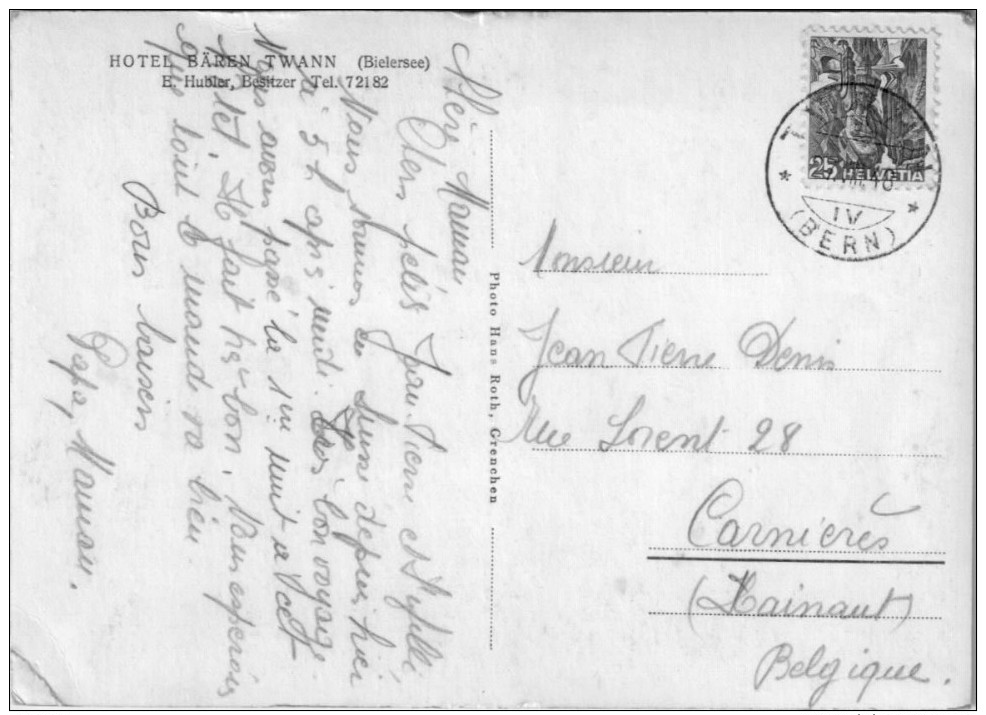 HOTEL BÄREN TWANN (Bielersee)
E. Hubler, Besitzer Tel. 72182
Chère Maman
Chers petits Jean Pierre et
Nous sommes en Suisse depuis hier
à 5 h après midi. Très bon voyage
Nous avons passé la 1re nuit a
Il fait très bon. Nous espérons
que tout le monde va bien.
Bons baisers
Papa, Maman.
Photo Hans Roth, Grenchen
25 HELVETIA
IV
(BERN)
Monsieur
Jean Pierre Denis
Rue Lorent 28
Carnières
(Hainaut)
Belgique.